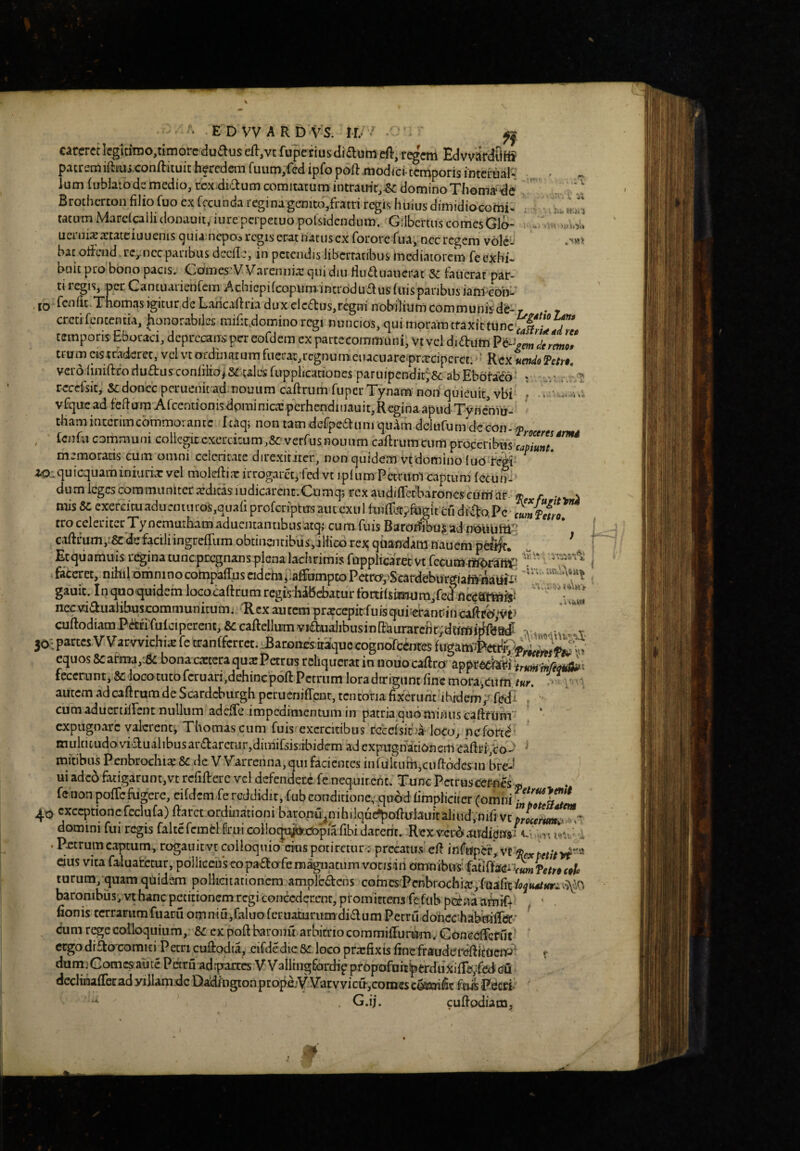 EDVVARDVS. II. 
careret legitimo,timore ductus est,vt superius dictum est, regem Edvvardum
patrem istius constituit hęredem suum,sed ipso post modici temporis interual-
lum sublato de medio, rex dictum comitatum intrauit,& domino Thomæ de
Brotherton filio suo ex secunda regina genito,fratri regis huius dimidio comi-
tatum Marescalli donauit, iure perpetuo possidendum. Gilbertus comes Glo-
uerniæ ætate iuuenis quia nepos regis erat natus ex sorore sua, nec regem vole-
bat offendere, nec paribus deesse, in petendis libertatibus mediatorem se exhi-
buit pro bono pacis. Comes VVarenniæ qui diu fluctuauerat & fauerat par-
ti regis, per Cantuariensem Achiepiscopum introductus suis paribus iam con-
10 sensit. Thomas igitur de Lancastria dux electus,regni nobilium communis de-
creti sententia, honorabiles misit domino regi nuncios, qui moram traxit tunc
temporis Eboraci, deprecans per eosdem ex parte communi, vt vel dictum Pe-
trum eis traderet, vel vt ordinatum fuerat,regnum euacuare præciperet. Rex
verò sinistro ductus consilio, & tales supplicationes paruipendit, & ab Eboraco
recessit, & donec peruenit ad nouum castrum super Tynam non quieuit, vbi
vsque ad festum Ascentionis dominicæ perhendinauit, Regina apud Tynemu-
tham interim commorante Itaq; non tam despectum quàm delusum de con-
sensu communi collegit exercitum,& versus nouum castrum cum proceribus
memoratis cum omni celeritate direxit iter, non quidem vt domino suo regi
20 quicquam iniuriæ vel molestiæ irrogaret, sed vt ipsum Petrum captum secun-
dum leges communiter æditas iudicarent. Cumq; rex audisset barones cum ar-
mis & exercitu aduenturos,quasi proscriptus aut exul fuisset,fugit cũ dicto Pe
tro celeriter Tynemutham aduentantibus atq; cum suis Baronibus ad nouum
castrum, & de facili ingressum obtinentibus, illico rex quandam nauem petijt.
Et quamuis regina tunc pregnans plena lachrimis supplicaret vt secum moram
faceret, nihil omnino compassus eidem, assumpto Petro, Scardeburgiam naui-
gauit. In quo quidem loco castrum regis habebatur fortissimum,sed necessarijs
nec victualibus communitum. Rex autem præcepit suis qui erant in castro,vt
custodiam Petri susciperent, & castellum victualibus instaurarent, dum ipse ad
30 partes VVarvvichiæ se transferret. Barones itaque cognoscentes fugam Petri,
equos & arma, & bona cætera quæ Petrus reliquerat in nouo castro appreciari
fecerunt, & loco tuto seruari, dehinc post Petrum lora dirigunt sine mora, cum
autem ad castrum de Scardeburgh peruenissent, tentoria fixerunt ibidem, sed
cum aduertissent nullum adesse impedimentum in patria quo minus castrum
expugnare valerent, Thomas cum suis exercitibus recessit à loco, ne fortè
multitudo victualibus arctaretur, dimissis ibidem ad expugnationem castri, co-
mitibus Penbrochiæ & de VVarrenna, qui facientes insultum, custodes in bre-
ui adeò fatigarunt,vt resistere vel defendere se nequirent. Tunc Petrus cernes
se non posse fugere, eisdem se reddidit, sub conditione, quòd simpliciter (omni
40 exceptione seclusa) staret ordinationi baronũ, nihilque postulauit aliud, nisi vt
domini sui regis saltē semèl frui colloquij copia sibi darent. Rex verò audiens
Petrum captum, rogauit vt colloquio eius potiretur: precatus est insuper, vt
eius vita saluaretur, pollicens eo pacto se magnatum votis in omnibus satisfac-
turum, quam quidem pollicitationem amplectens comes Penbrochiæ, suasit
baronibus, vt hanc petitionem regi concederent, promittens se sub pœna amis-
sionis terrarum suarũ omniũ, saluo seruaturum dictum Petrũ donec habuisset
cum rege colloquium, & ex post baronũ arbitrio commissurum. Concesserũt
ergo dicto comiti Petri custodiã, eisdẽ dic & loco præfixis sine fraude restituen-
dum. Comes autē Petrũ ad partes VVallingfordię proposuit perduxisse, sed cũ
declinasset ad villam de Dadington propè VVarvvicũ, comes commisit suis Petri
G.ij. custodiam,
Legatio Lancastriæ ad regem de remouendo Petro.
Proceres arma capiunt.
Rex fugit vnà cum Petro.
Proceres Petrum insequuntur.
Petrus venit in potestatem procerum.
Rex petit vt cum Petro coloquatur.